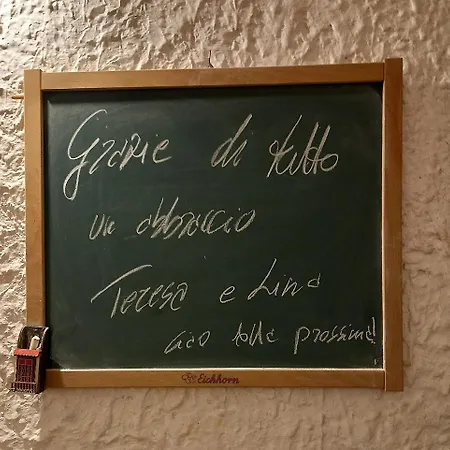 Grazie di tutto
un abbraccio
Teresa e Lina
ciao alla prossima!
Eichhorn